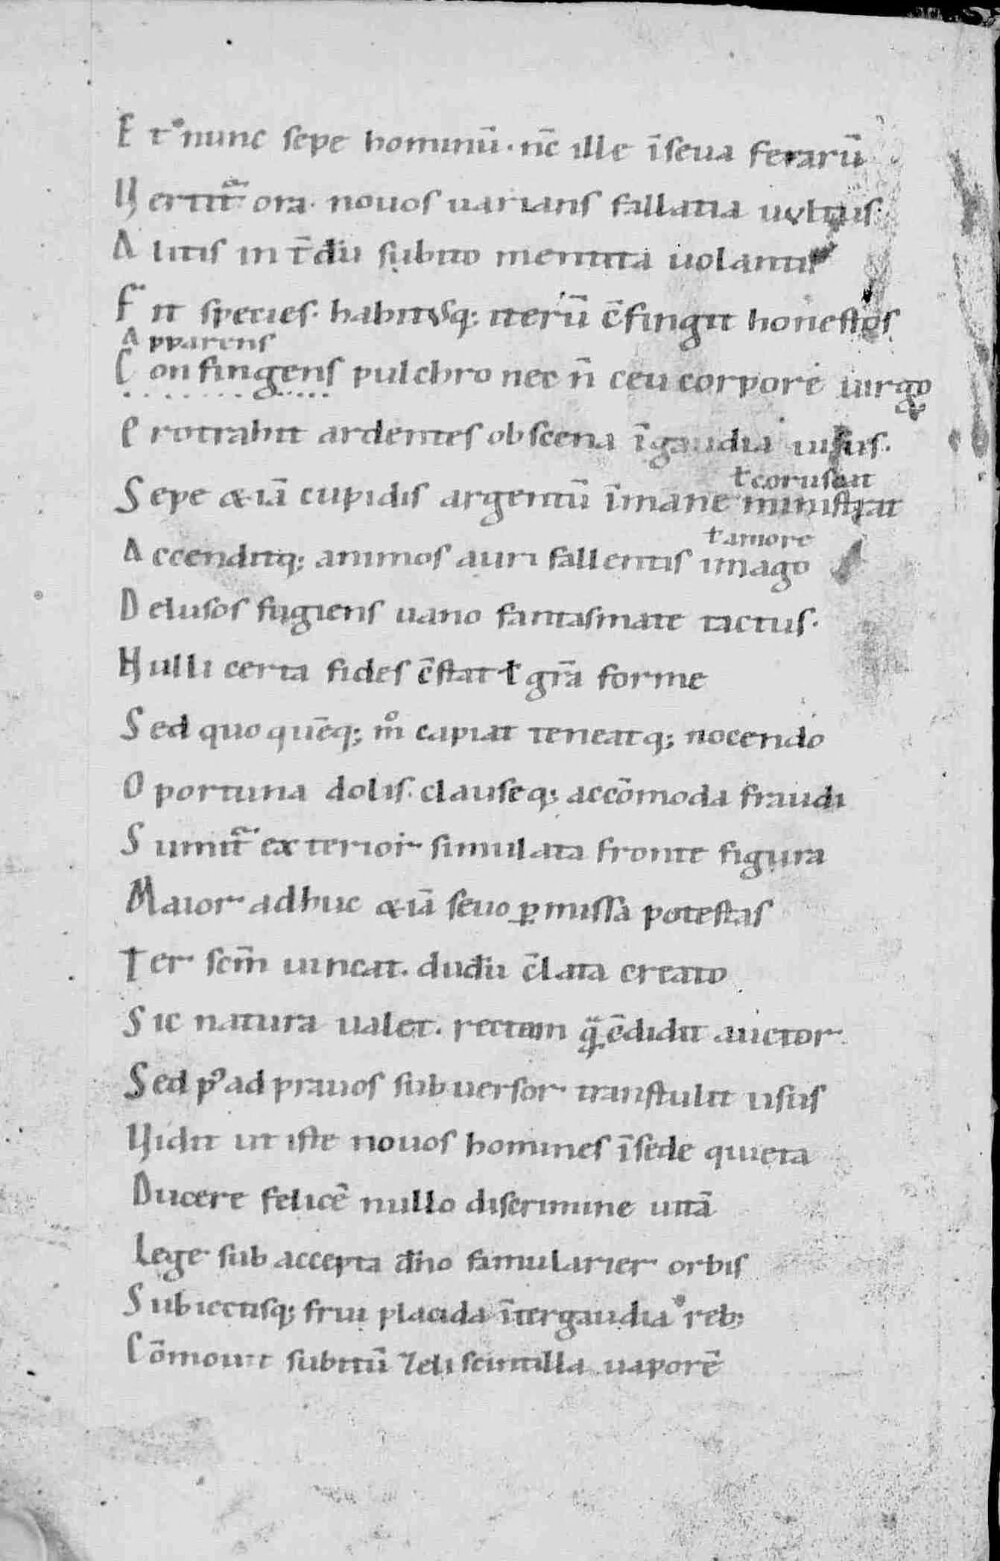 E t nunc sepe hominū. nc̄ ille īseva ferarū
V ertit̄ ora. novos varians fallatia vultus.
A litis in t̄dū subito mentita volantis
F it species. habitusq; iterū c̄fingit honestos
A pparens
C onfingens pulchro nec n̄ ceu corpore virgo
P rotrahit ardentes obscena īgaudia visus.
ł coruscat
S epe &iā cupidis argentū īmane ministrat
ł amore
A ccenditq; animos auri fallentis imago
D elusos fugiens vano fantasmate tactus.
N ulli certa fides c̄stat ł gr̄a forme
S ed quo quēq; m̊ capiat teneatq; nocendo
O portuna dolis. clauseq; accōmoda fraudi
S umit̄ exterior simulata fronte figura
M aior adhuc &iā sevo ꝑmissa potestas
T er sem̄ vincat. dudū c̄lata creato
S ic natura valet. rectam q̄ c̄didit auctor.
S ed pꝰ ad pravos subversor transtulit usus
V idit ut iste novos homines īsede quieta
D ucere felicē nullo discrimine vitā
L ege sub accepta dn̄o famularier orbis
S ubiectisq; frui placida īter gaudia reb;
C ōmovit subitū zeli scintilla vaporē